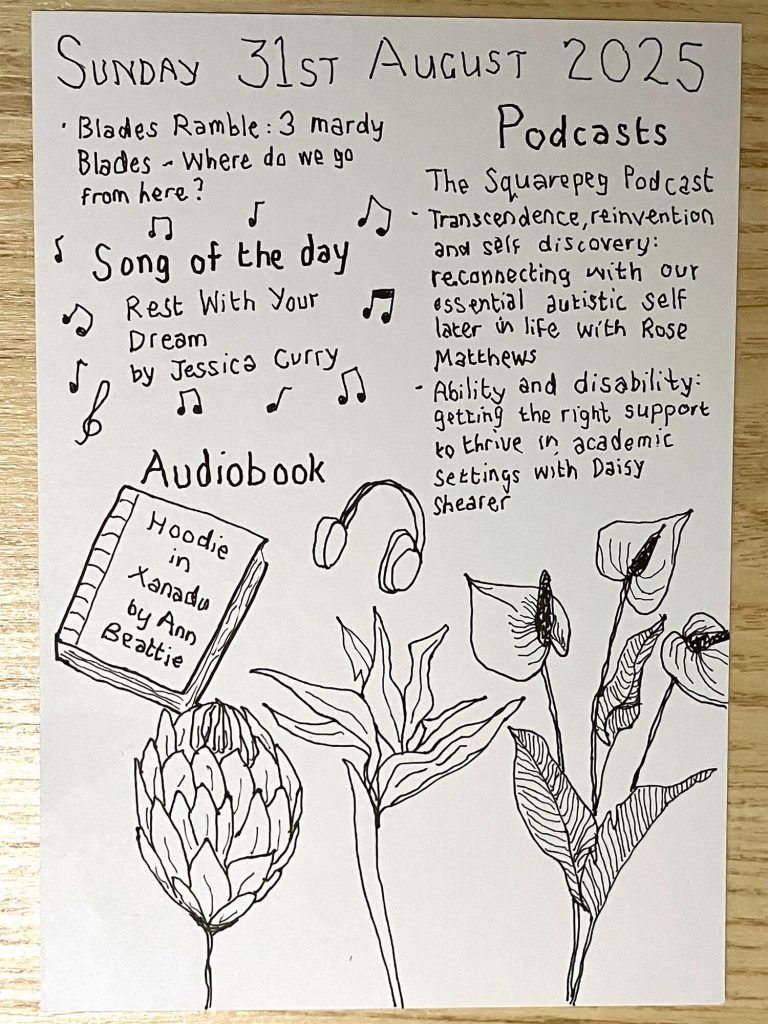 SUNDAY 31ST AUGUST 2025
· Blades Ramble: 3 mardy
Blades - Where do we go
from here?
Song of the day
Rest With Your
Dream
by Jessica Curry
Podcasts
The Squarepeg Podcast
- Transcendence, reinvention
and self discovery:
reconnecting with our
essential autistic self
later in life with Rose
Matthews
- Ability and disability:
getting the right support
to thrive in academic
settings with Daisy
Shearer
Audiobook
Hoodie
in
Xanadu
by Ann
Beattie